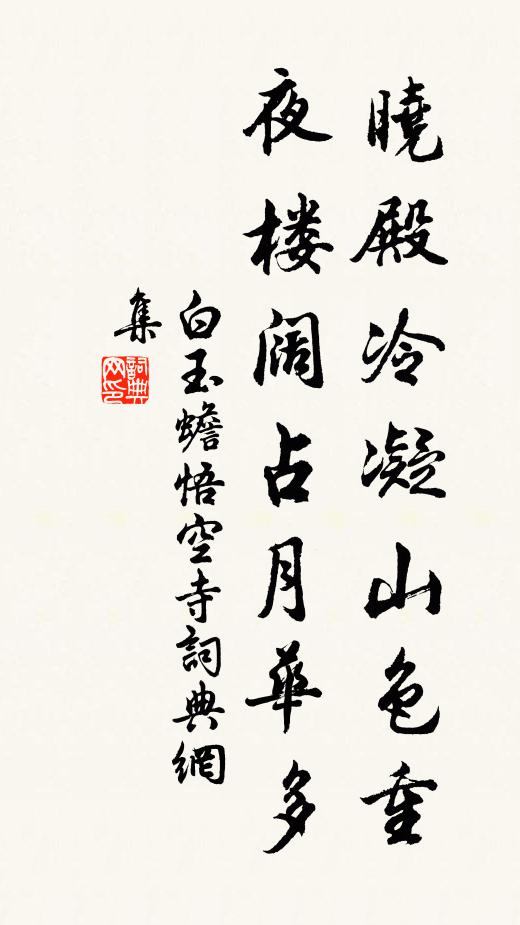 曉殿冷凝山色重
夜楼阔占月華多
白玉蟾悟空寺詞典網
集
詞典网印